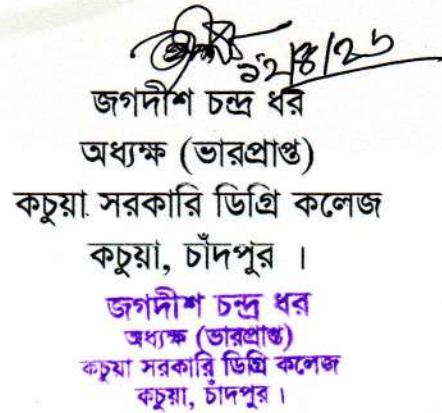 ১২/৪/২৬
জগদীশ চন্দ্র ধর
অধ্যক্ষ (ভারপ্রাপ্ত)
কচুয়া সরকারি ডিগ্রি কলেজ
কচুয়া, চাঁদপুর ।
জগদীশ চন্দ্র ধর
অধ্যক্ষ (ভারপ্রাপ্ত)
কচুয়া সরকারি ডিগ্রি কলেজ
কচুয়া, চাঁদপুর ।